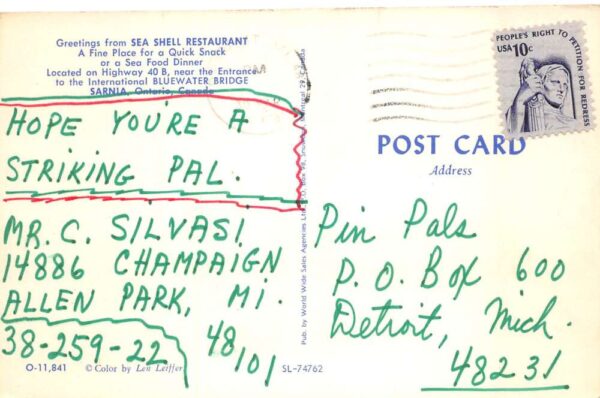 Greetings from SEA SHELL RESTAURANT
A Fine Place for a Quick Snack
or a Sea Food Dinner
Located on Highway 40 B, near the Entrance
to the International BLUEWATER BRIDGE
SARNIA, Ontario, Canada
HOPE YOU'RE A
STRIKING PAL.
MR. C. SILVASI
14886 CHAMPAIGN
ALLEN PARK, MI.
48101
38-259-22
O-11,841 © Color by Len Leiffer
Pub. by World Wide Sales Agencies Ltd.
SL-74762
PEOPLE'S RIGHT TO PETITION FOR REDRESS
USA 10c
POST CARD
Address
Pin Pals
P.O. Box 600
Detroit, Mich.
48231